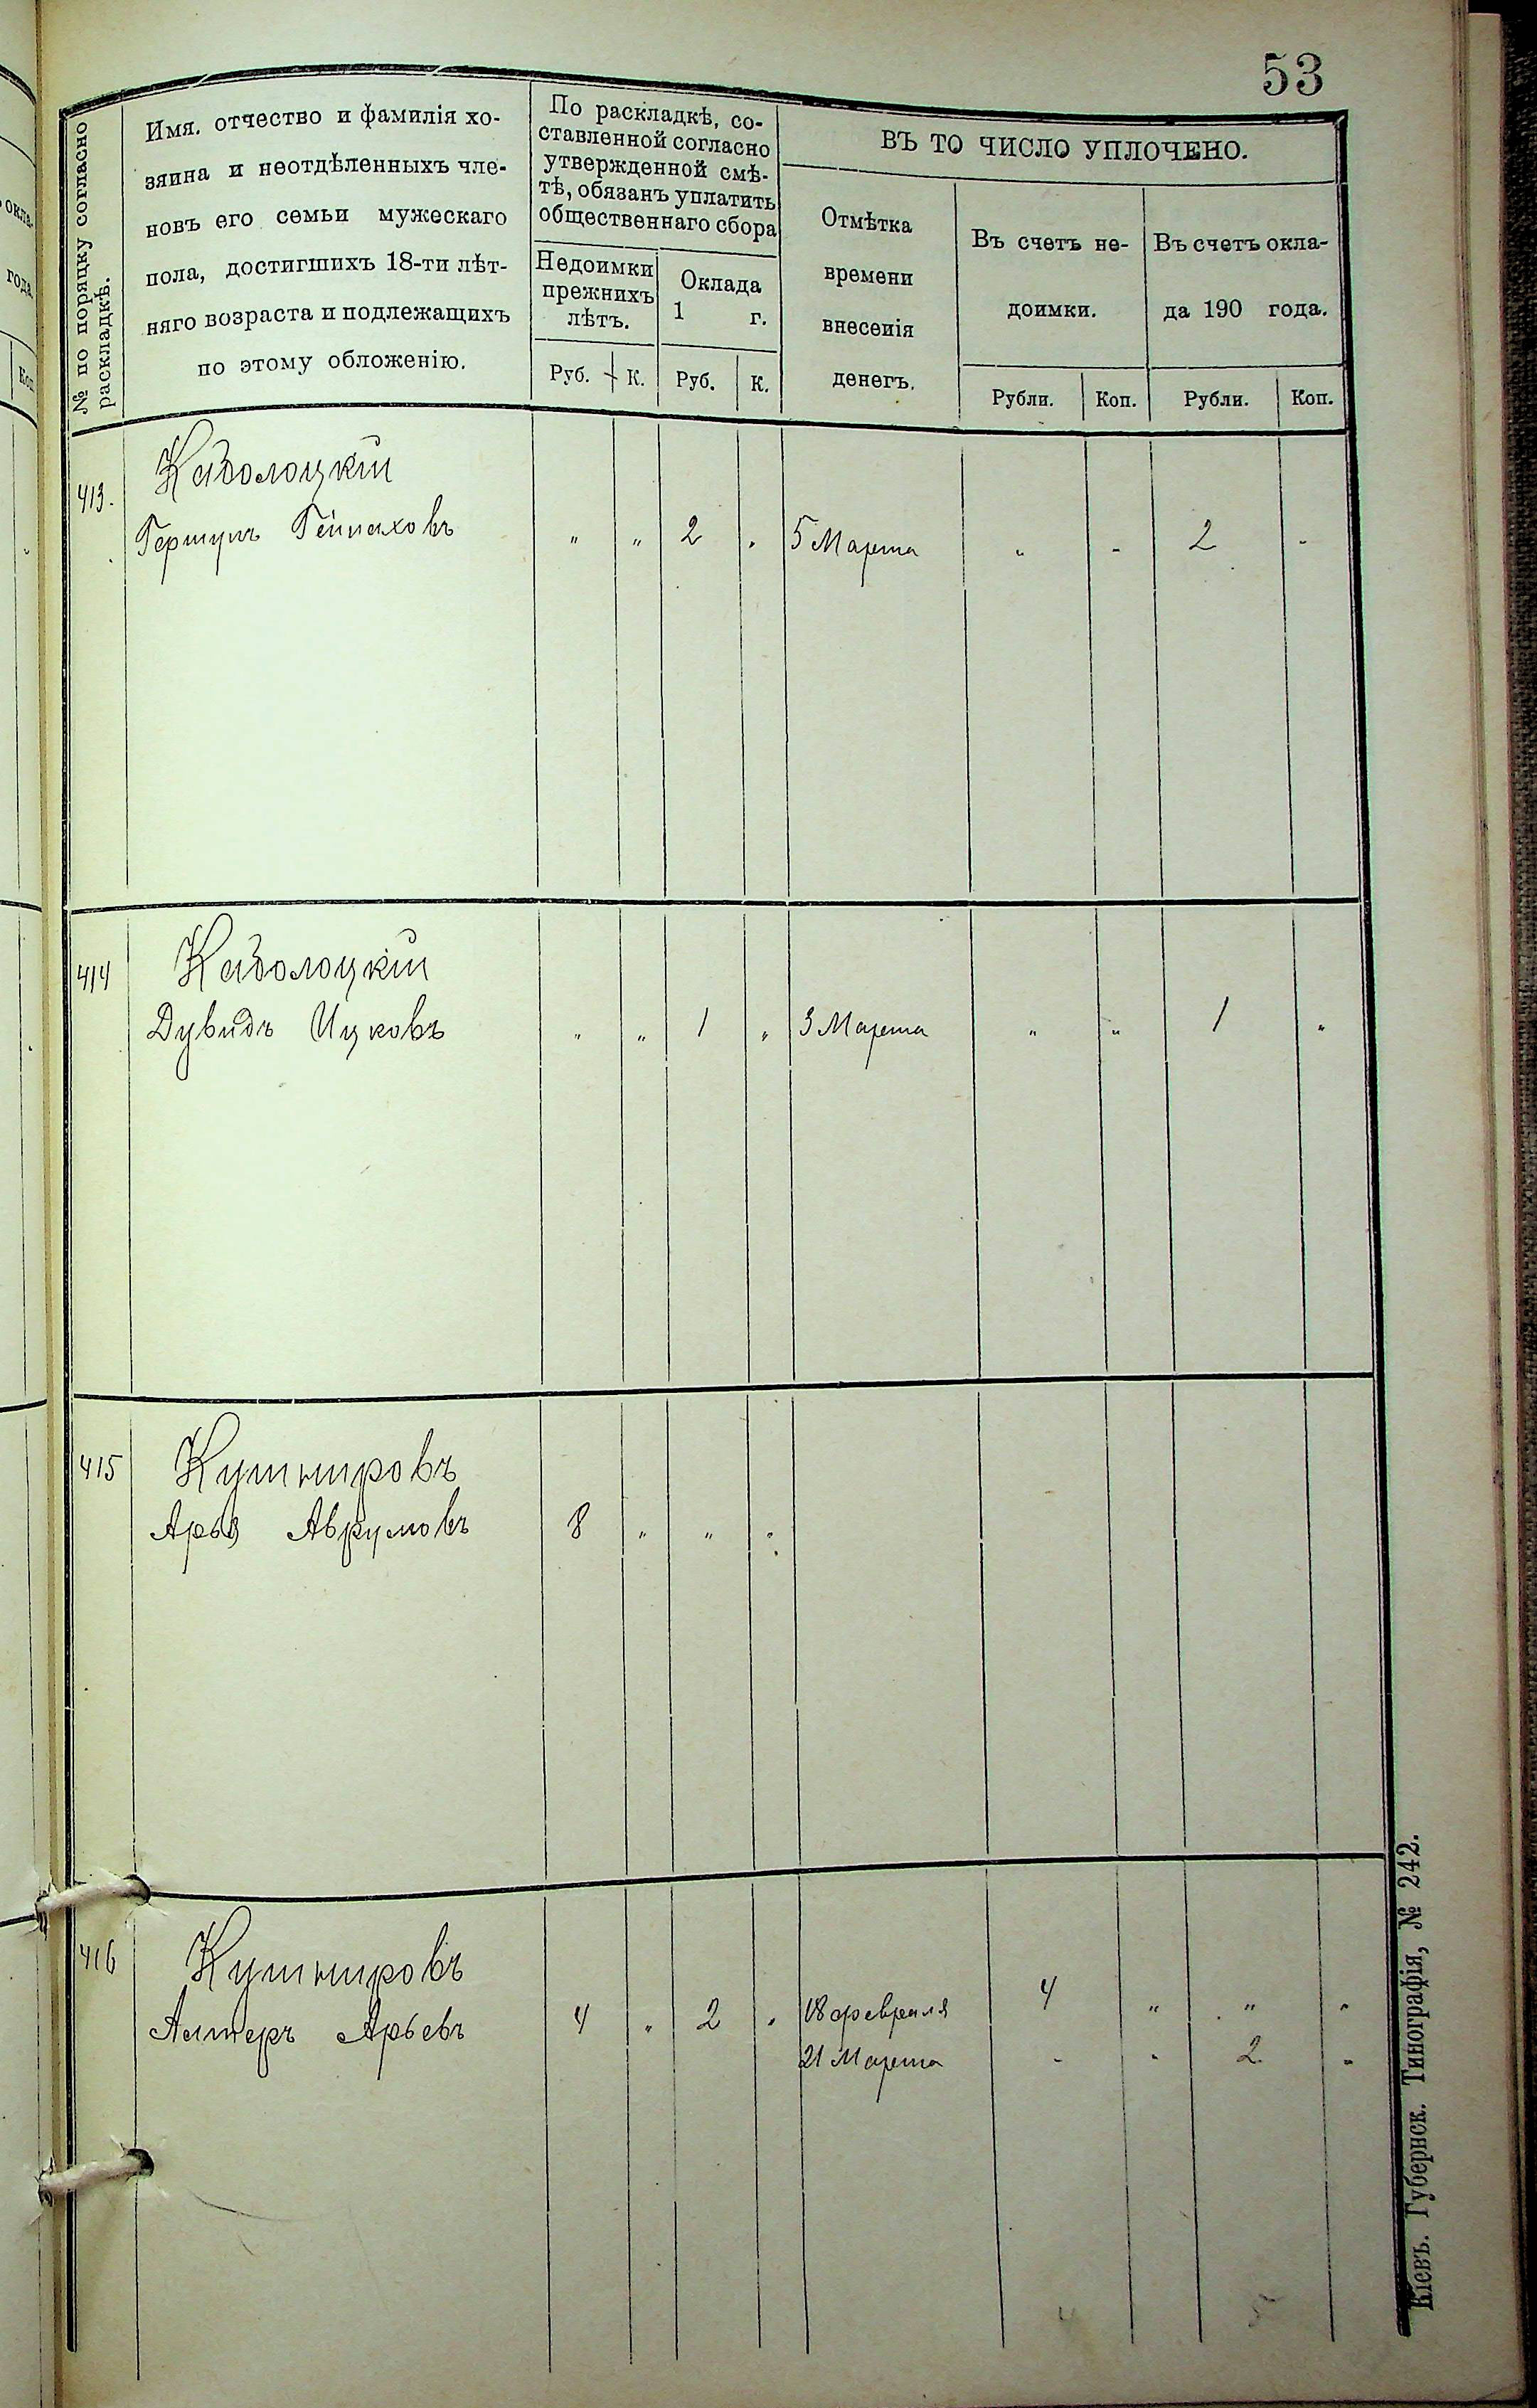 53
№ по порядку согласно раскладкѣ.
Имя. отчество и фамилія хо-
зяина и неотдѣленныхъ чле-
новъ его семьи мужескаго
пола, достигшихъ 18-ти лѣт-
няго возраста и подлежащихъ
по этому обложенію.
По раскладкѣ, со-
ставленной согласно
утвержденной смѣ-
тѣ, обязанъ уплатить
общественнаго сбора
Недоимки
прежнихъ
лѣтъ.
Оклада
1 г.
Руб. К. Руб. К.
ВЪ ТО ЧИСЛО УПЛОЧЕНО.
Отмѣтка
времени
внесенія
денегъ.
Въ счетъ не-
доимки.
Въ счетъ окла-
да 190 года.
Рубли. Коп. Рубли. Коп.
413. Кадолоцкій
Гершунъ Гейнаховъ " " 2 " 5 Марта " " 2 "
414 Кадолоцкій
Дувидъ Ицковъ " " 1 " 3 Марта " " 1 "
415 Кушнировъ
Арья Аврумовъ 8 " " "
416 Кушнировъ
Алтеръ Арьевъ 4 " 2 " 18 февраля 4 " " "
21 Марта " " 2 "
Кіевъ. Губернск. Типографія, № 242.